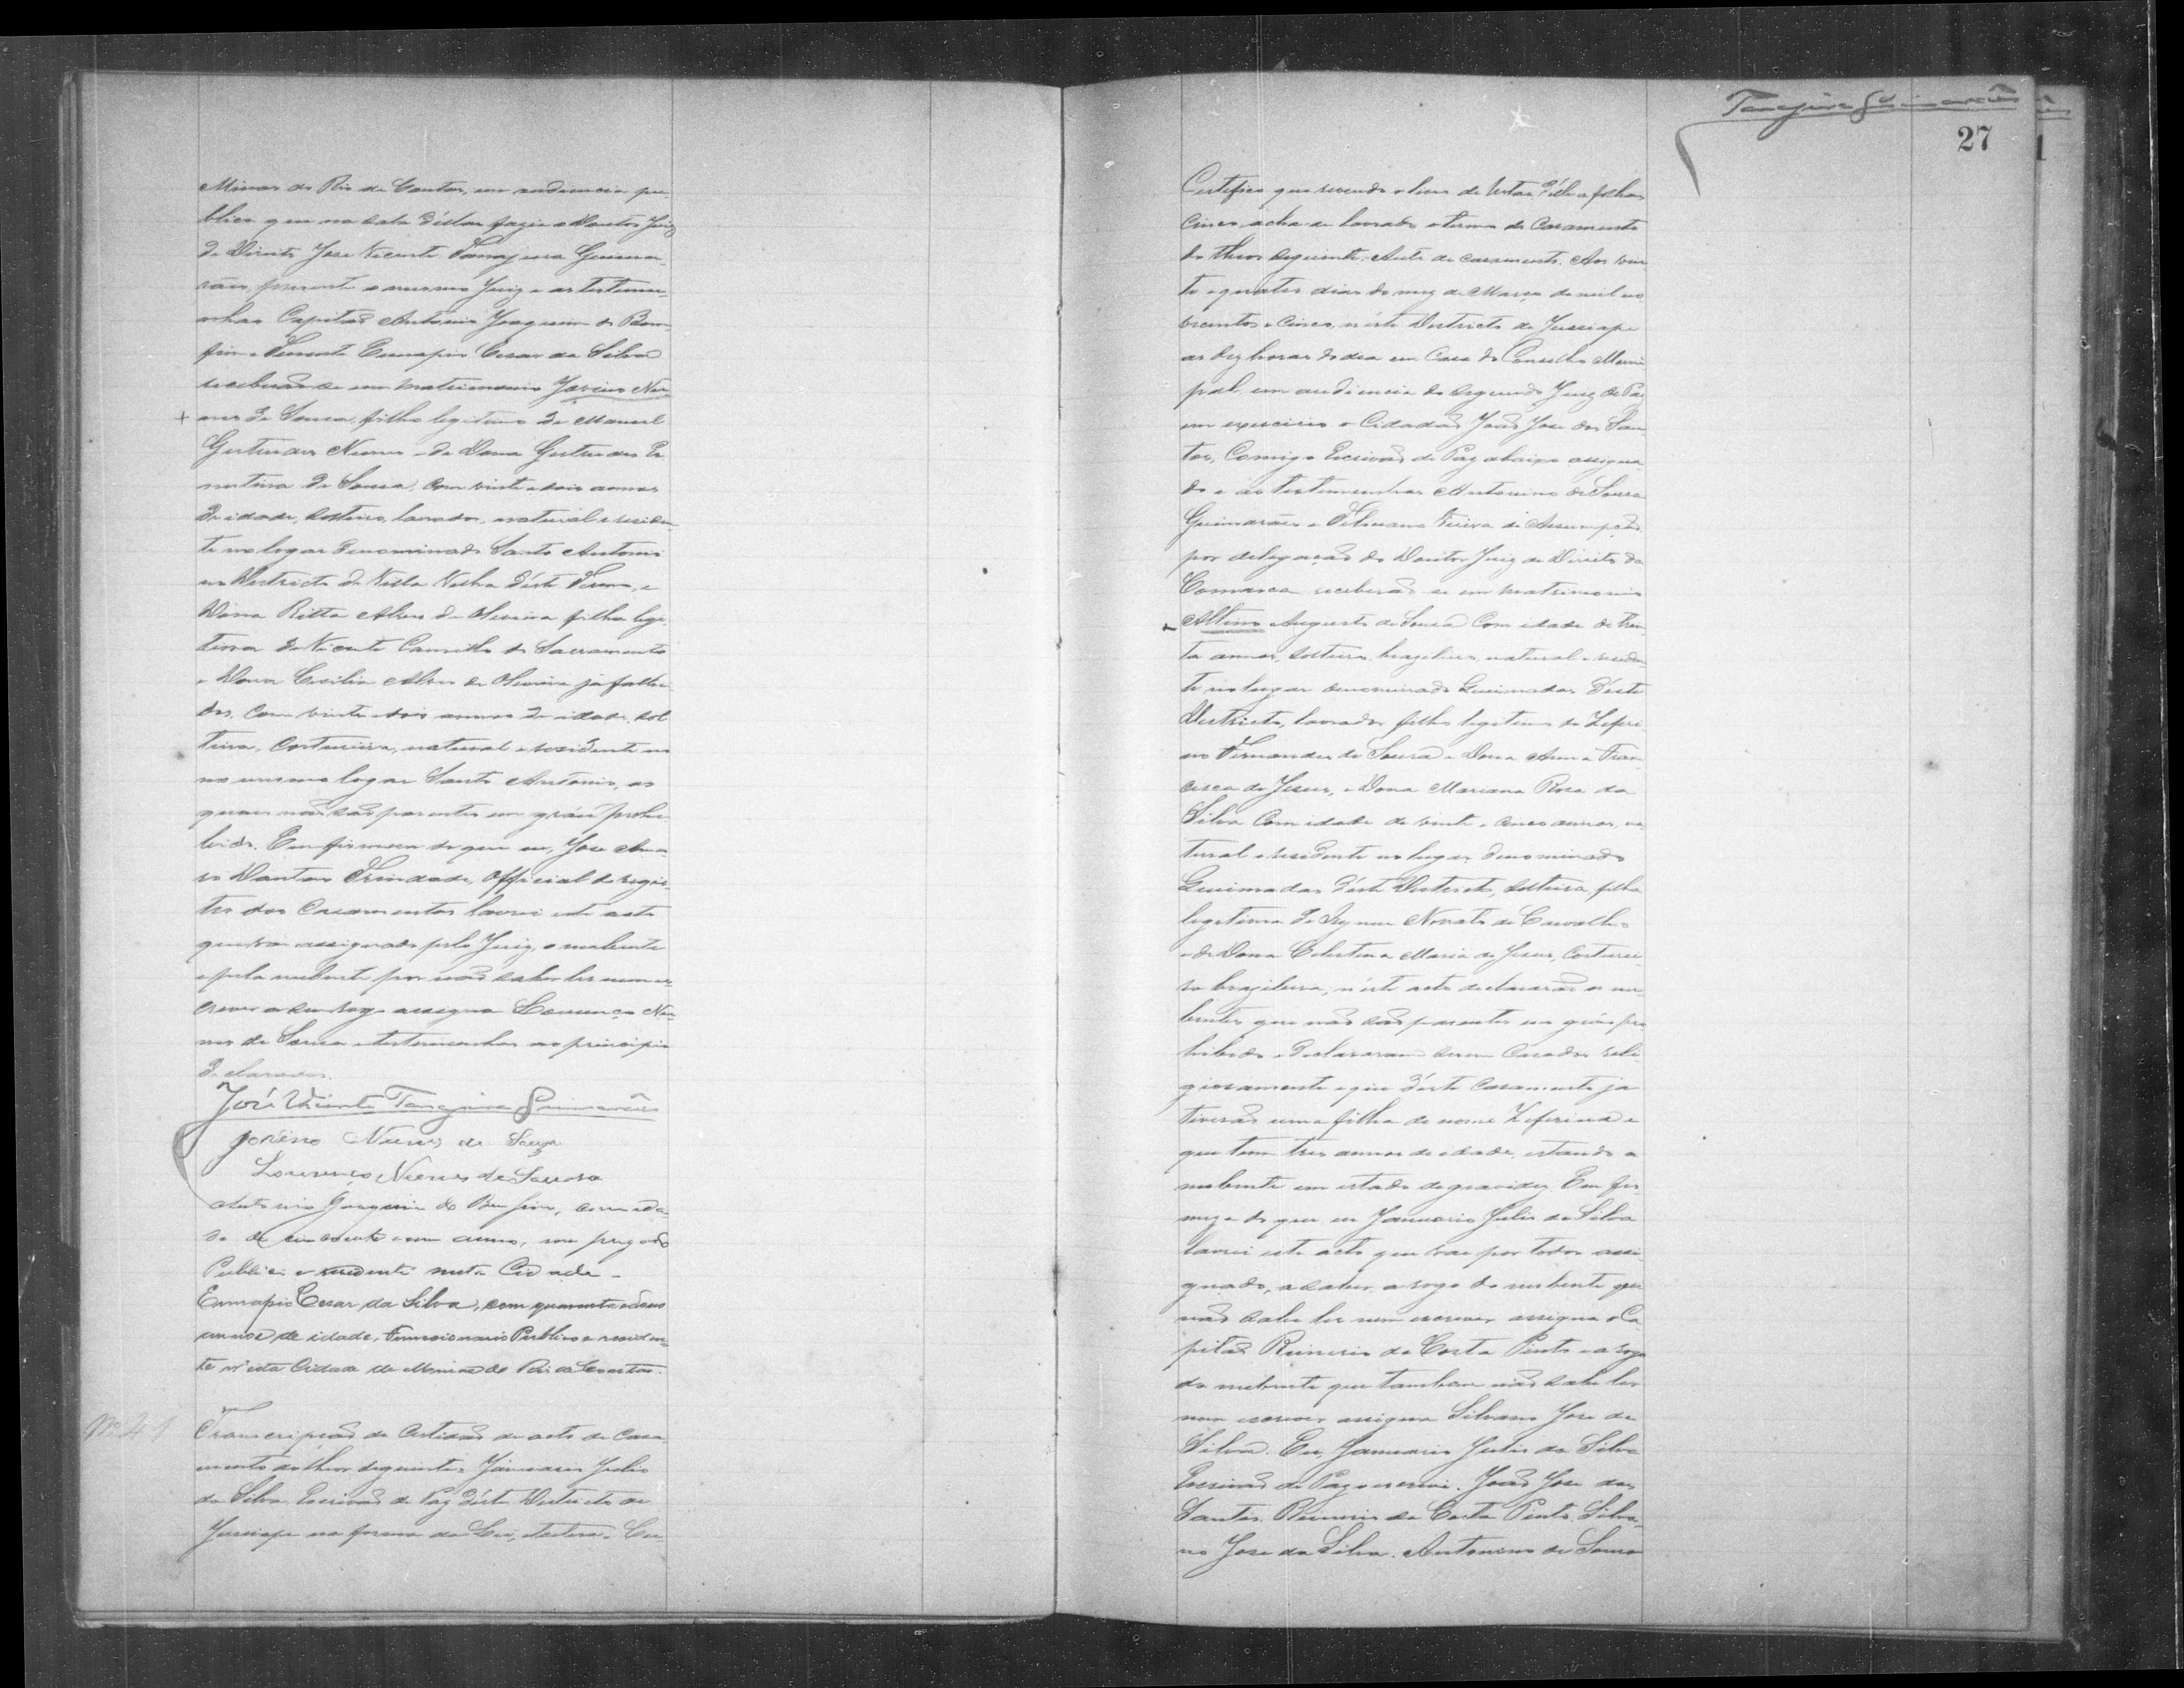 Minas do Rio de Contas, em audiencia pu-
blica que na sala dellas fazia o Doutor Juiz
de Direito José Vicente Tanajura Guima-
rães, presente o mesmo Juiz e as testemu-
nhas Capitão Antonio Joaquim do Bom-
fim e Tenente Eunapio Cesar da Silva
receberão-se em matrimonio Nu-
nes de Sousa, filho legitimo de Manoel
Gertrudes Nunes e de Dona Gertrudes
de Sousa, com vinte e dois annos
de idade, solteiro, lavrador, natural e residen-
te no logar denominado Santo Antonio
no Districto de Villa Velha d'este Termo, e
Dona Ritta Alves de Oliveira filha legi-
tima de Vicente Camillo do Sacramento
e Dona Cecilia Alves de Oliveira já falle-
dos, com vinte e dois annos de idade, sol-
teira, costureira, natural e residente em
no mesmo logar Santo Antonio, os
quaes não são parentes em gráu prohi-
bido. Em firmesa do que eu, José
Dantas Trindade, Official do regis-
tro dos Casamentos lavrei este acto
que vai assignado pelo Juiz, o nubente
e pela nubente por não saber ler nem es-
crever a seu rogo assigna Lourenço Nu-
nes de Sousa e testemunhas no principio
declaradas.
José Vicente Tanajura Guimarães
Nunes de Souza
Lourenço Nunes de Souza
Antonio Joaquim do Bomfim, com ida-
de de cincoenta e um anno, empregado
Publico e residente nesta Cidade.
Eunapio Cesar da Silva, com quarenta e
annos de idade, Funccionario Publico e residen-
te n'esta Cidade de Minas do Rio de Contas.
Nº 41
Transcripção da Certidão do acto de Casa-
mento do theor seguinte. Januario Julio
da Silva Escrivão de Paz d'este Districto de
Jussiape na forma da Lei, etcetera. Cer-
Tanajura Guimarães
27
Certifico que revendo o livro de Notas d'elle a folhas
cinco, acha-se lavrado o termo de Casamento
do theor seguinte. Auto de casamento. Aos vin-
te e quatro dias do mez de Março de mil no-
vecentos e cinco, n'este Districto de Jussiape
as dez horas do dia em Casa do Conselho Muni-
pal em audiencia do segundo Juiz de Paz
em exercicio o Cidadão João José dos San-
tos, Comigo Escrivão de Paz abaixo assigna-
do e as testemunhas Antonino de Sousa
Guimarães e Feliciano Vieira de Assumpção
por delegação do Doutor Juiz de Direito da
Comarca receberão-se em matrimonio
Altino Augusto de Sousa Com idade de trin-
ta annos, solteiro, brazileiro, natural e residen-
te no lugar denominado Queimadas d'este
Districto, lavrador, filho legitimo de Zeferi-
no Fernandes de Sousa e Dona Anna Fran-
cisca de Jesus, e Dona Mariana Rosa da
Silva com idade de vinte e cinco annos, na-
tural e residente no lugar denominado
Queimadas d'este Districto, solteira, filha
legitima de Novato de Carvalho
e de Dona Celestina Maria de Jesus, costurei-
ra brazileira, n'este acto declararão os nu-
bentes que não são parentes em gráu pro-
hibido e declararam serem Casados reli-
giosamente e que d'este casamento já
tiverão uma filha de nome Zeferina e
que tem tres annos de idade, estando a
nubente em estado de gravidez. Em fir-
meza do que eu Januario Julio da Silva
lavrei este acto que vae por todos assi-
gnado, a saber a rogo do nubente que
não sabe ler nem escrever assigna o Ca-
pitão Reinerio da Costa Pinto e a rogo
da nubente que tambem não sabe ler
nem escrever assigna Silvano José da
Silva. Eu Januario Julio da Silva
Escrivão de Paz o escrevi. João José dos
Santos. Reinerio da Costa Pinto. Silva-
no José da Silva. Antonino de Sousa